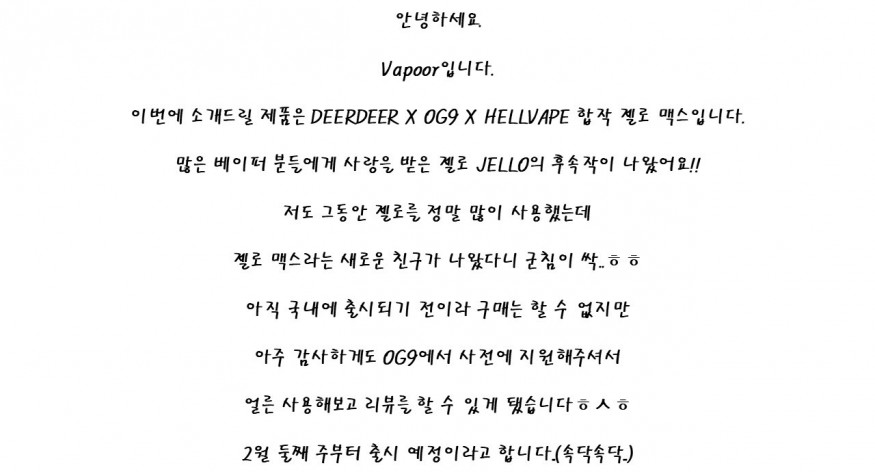 안녕하세요.
Vapoor입니다.
이번에 소개드릴 제품은 DEERDEER X OG9 X HELLVAPE 합작 젤로 맥스입니다.
많은 베이퍼 분들에게 사랑을 받은 젤로 JELLO의 후속작이 나왔어요!!
저도 그동안 젤로를 정말 많이 사용했는데
젤로 맥스라는 새로운 친구가 나왔다니 군침이 싹..ㅎㅎ
아직 국내에 출시되기 전이라 구매는 할 수 없지만
아주 감사하게도 OG9에서 사전에 지원해주셔서
얼른 사용해보고 리뷰를 할 수 있게 됐습니다ㅎㅅㅎ
2월 둘째 주부터 출시 예정이라고 합니다.(속닥속닥.)